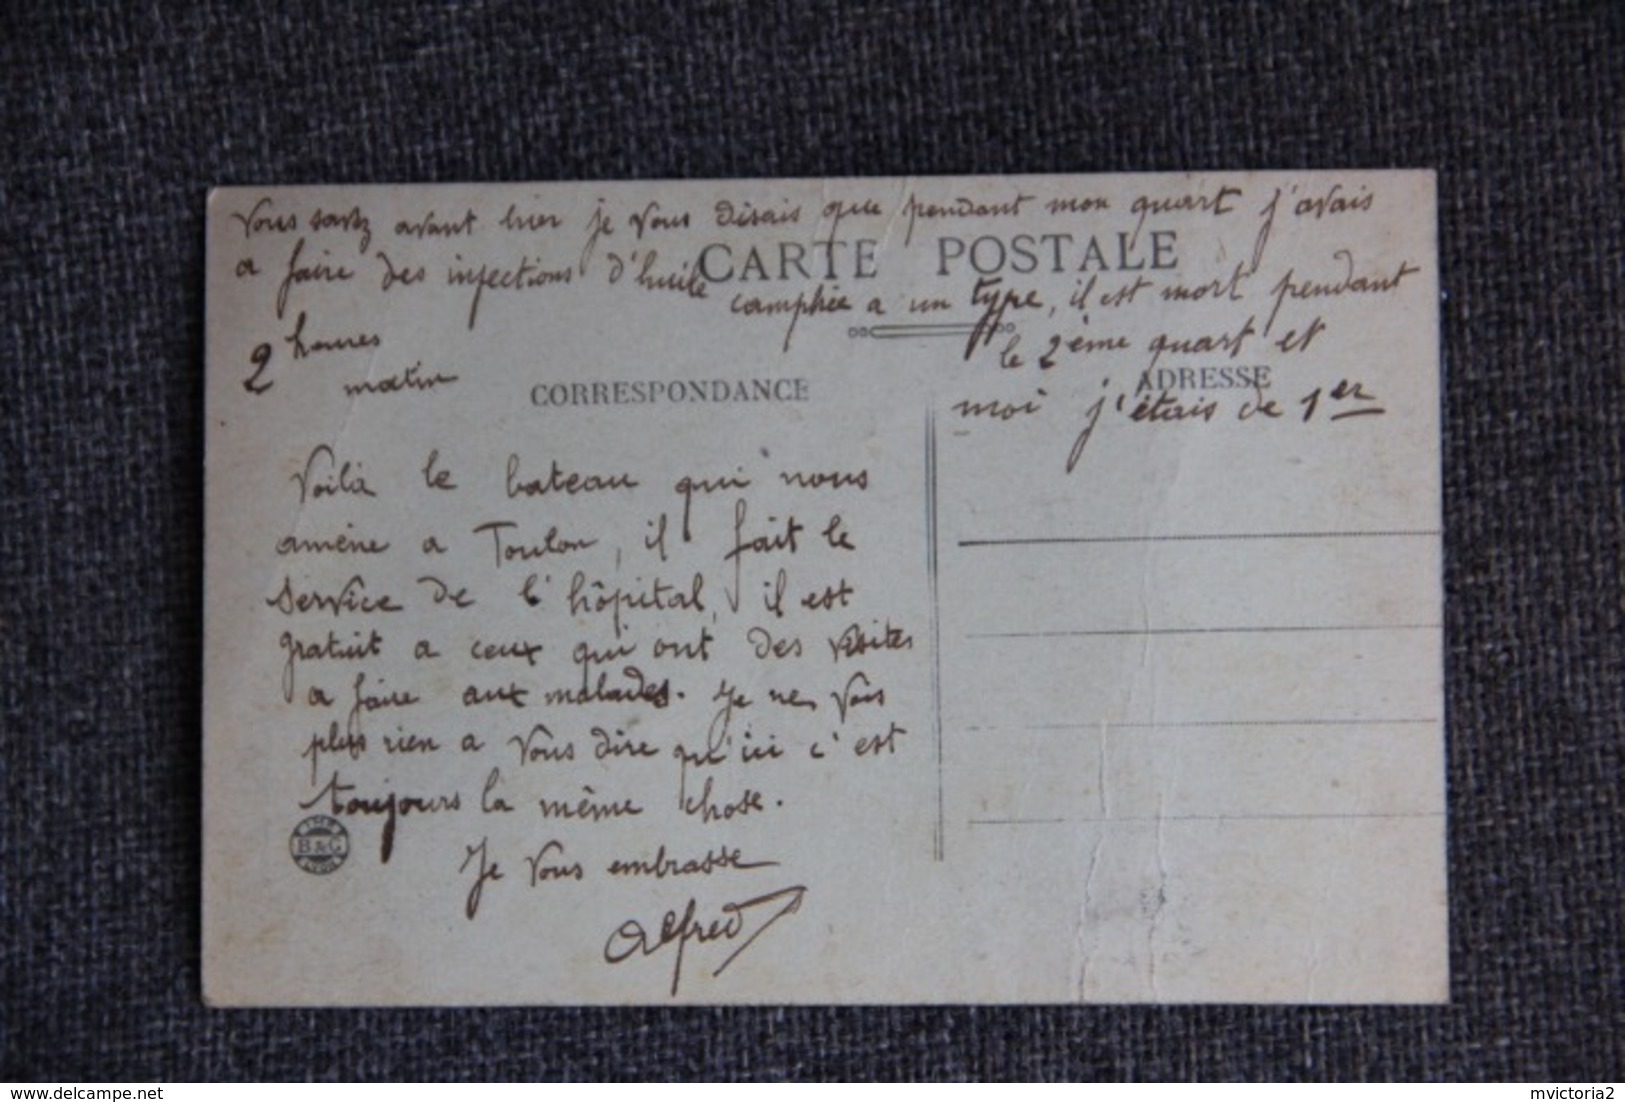 Vous savez avant hier je vous disais que pendant mon quart j'avais
a faire des injections d'huile camphrée a un type, il est mort pendant
le 2ème quart et
moi j'étais de 1er
CARTE POSTALE
2 heures
matin
CORRESPONDANCE
ADRESSE
Voilà le bateau qui nous
amène a Toulon, il fait le
service de l'hôpital, il est
gratuit a ceux qui ont des visites
a faire aux malades. Je ne vois
plus rien a vous dire qu'ici c'est
toujours la même chose.
Je vous embrasse
Alfred
IMP.
B & G
LYON
delcampe.net
mvictoria2